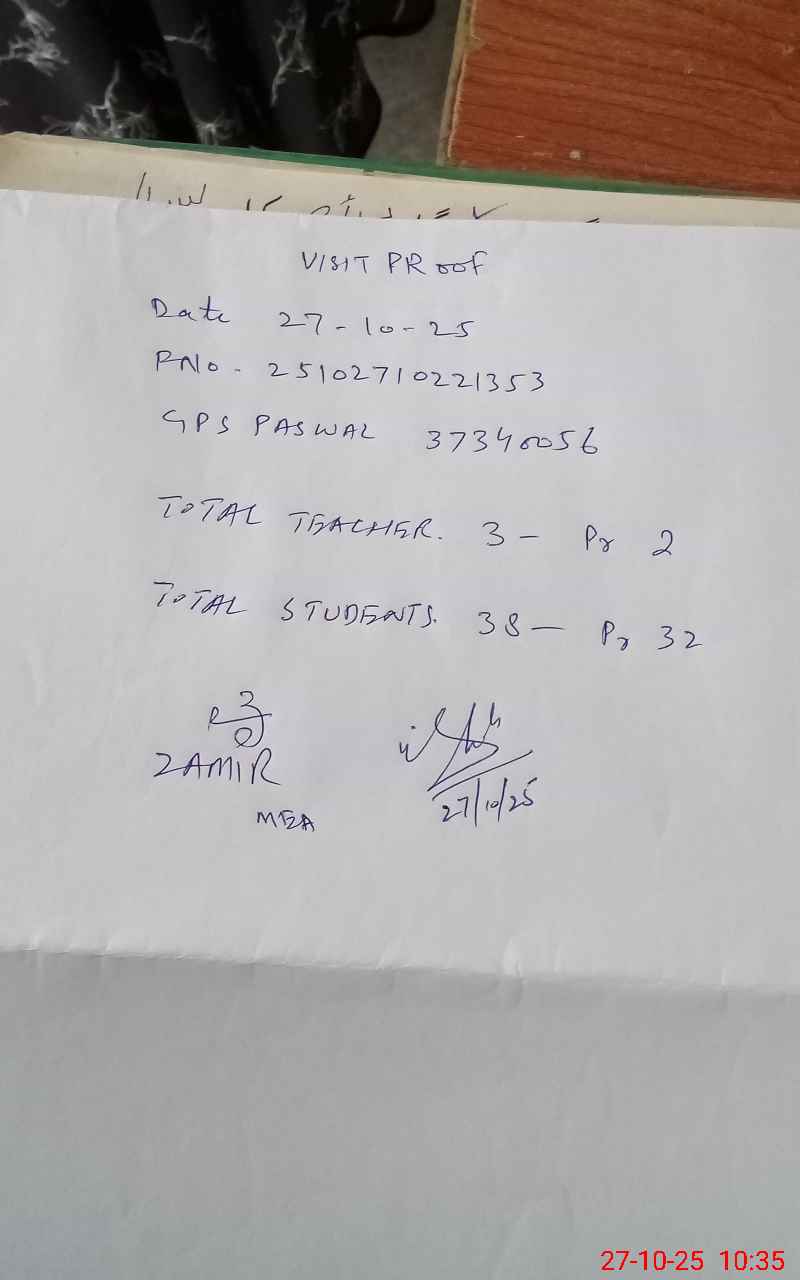 VISIT PROOF
Date 27-10-25
PNo. 25102710221353
GPS PASWAL 37340056
TOTAL TEACHER. 3 - Pr 2
TOTAL STUDENTS. 38 - Pr 32
ZAMIR
MEA
27/10/25
27-10-25 10:35